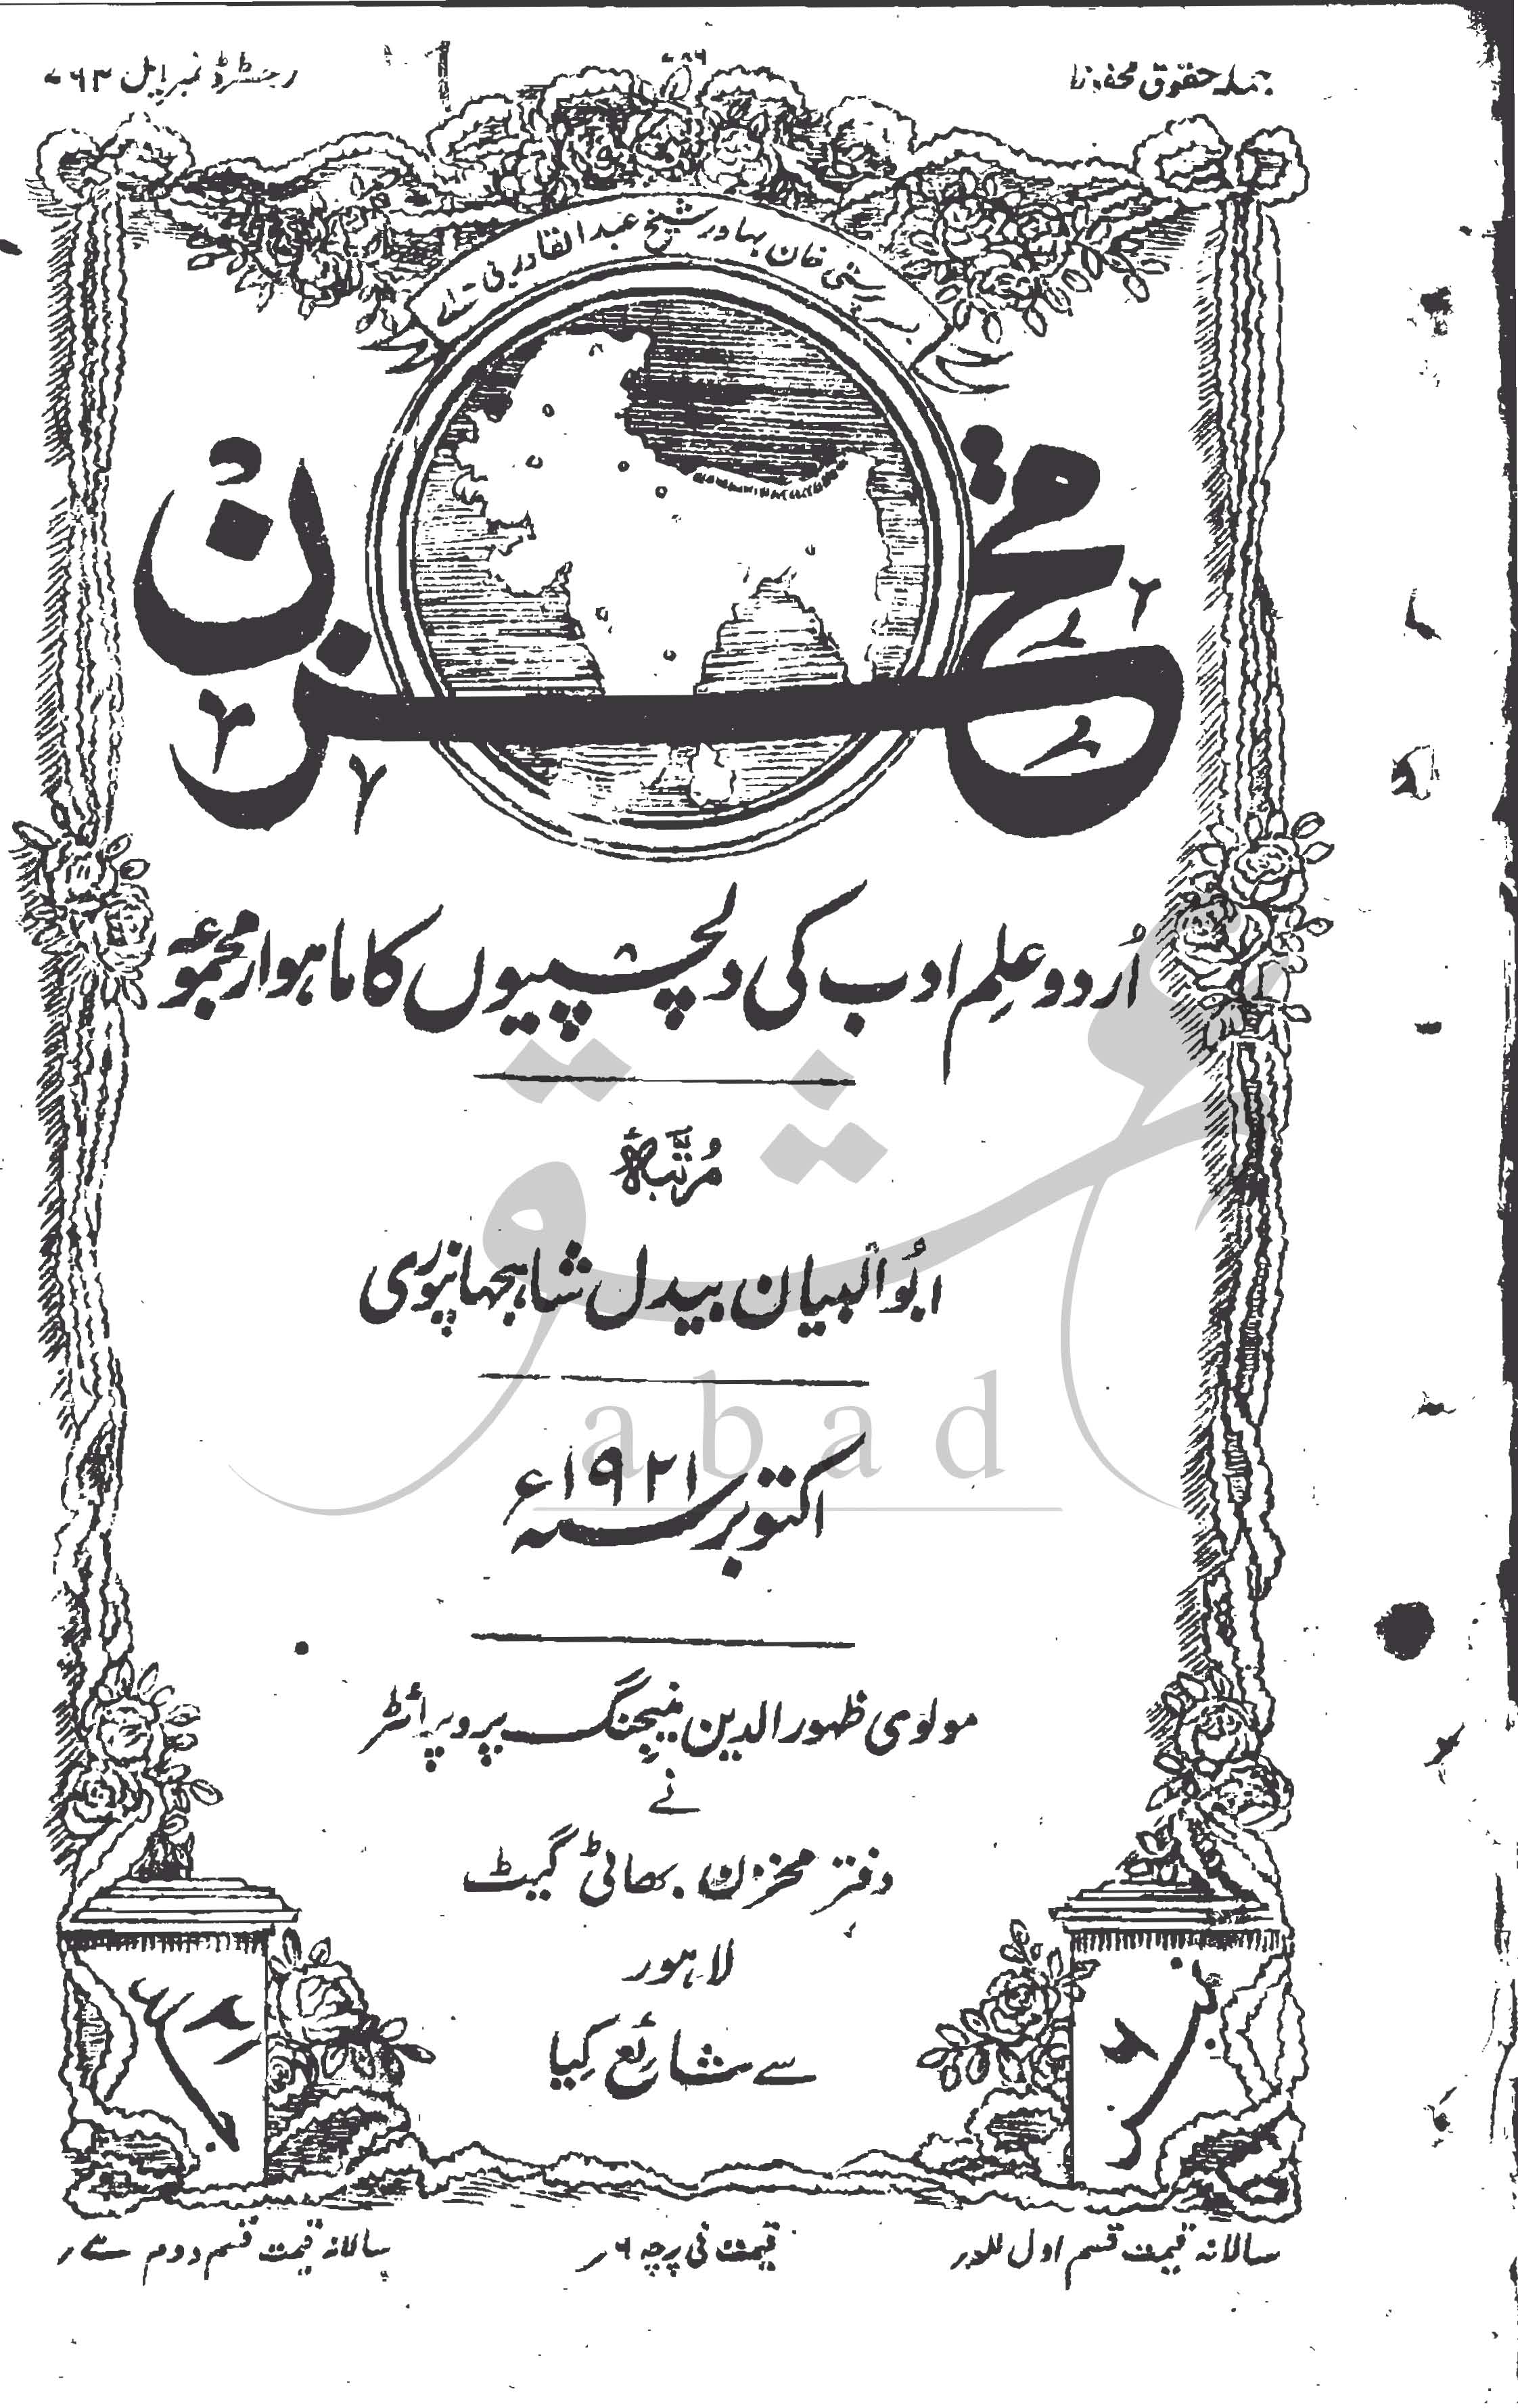 جملہ حقوق محفوظ
۷۸۶
رجسٹرڈ نمبر ایل ۷۶۳
بسرپرستی خان بہادر شیخ عبدالقادر بی
مخزن
اُردو علِم ادب کی دلچسپیوں کا ماہوار مجموعہ
مُرتّبہٗ
ابُوالبیان بیدل شاہجہانپوری
اکتوبر سنہ ۱۹۲۱ء
مولوی ظہور الدین منیجنگ پروپرائٹر
نے
دفتر مخزن. بھاٹی گیٹ
لاہور
سے شائع کِیا
نمبر
جلد
سالانہ قیمت قسم اول للعہ
قیمت فی پرچہ ۶؍
سالانہ قیمت قسم دوم
عشق
abad